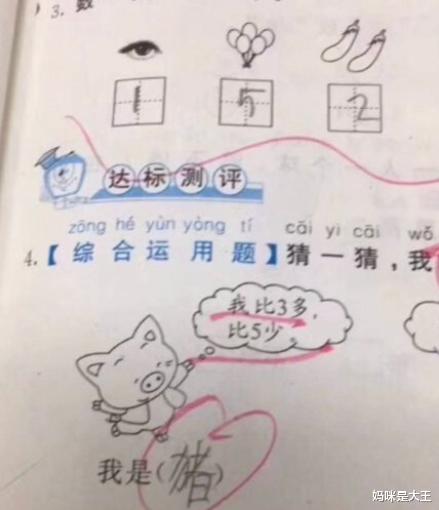 3. 数
1 5 2
达标测评
zōng hé yùn yòng tí cāi yi cāi wǒ
4.【综合运用题】猜一猜,我
我比3多,
比5少。
我是(猪)
妈咪是大王